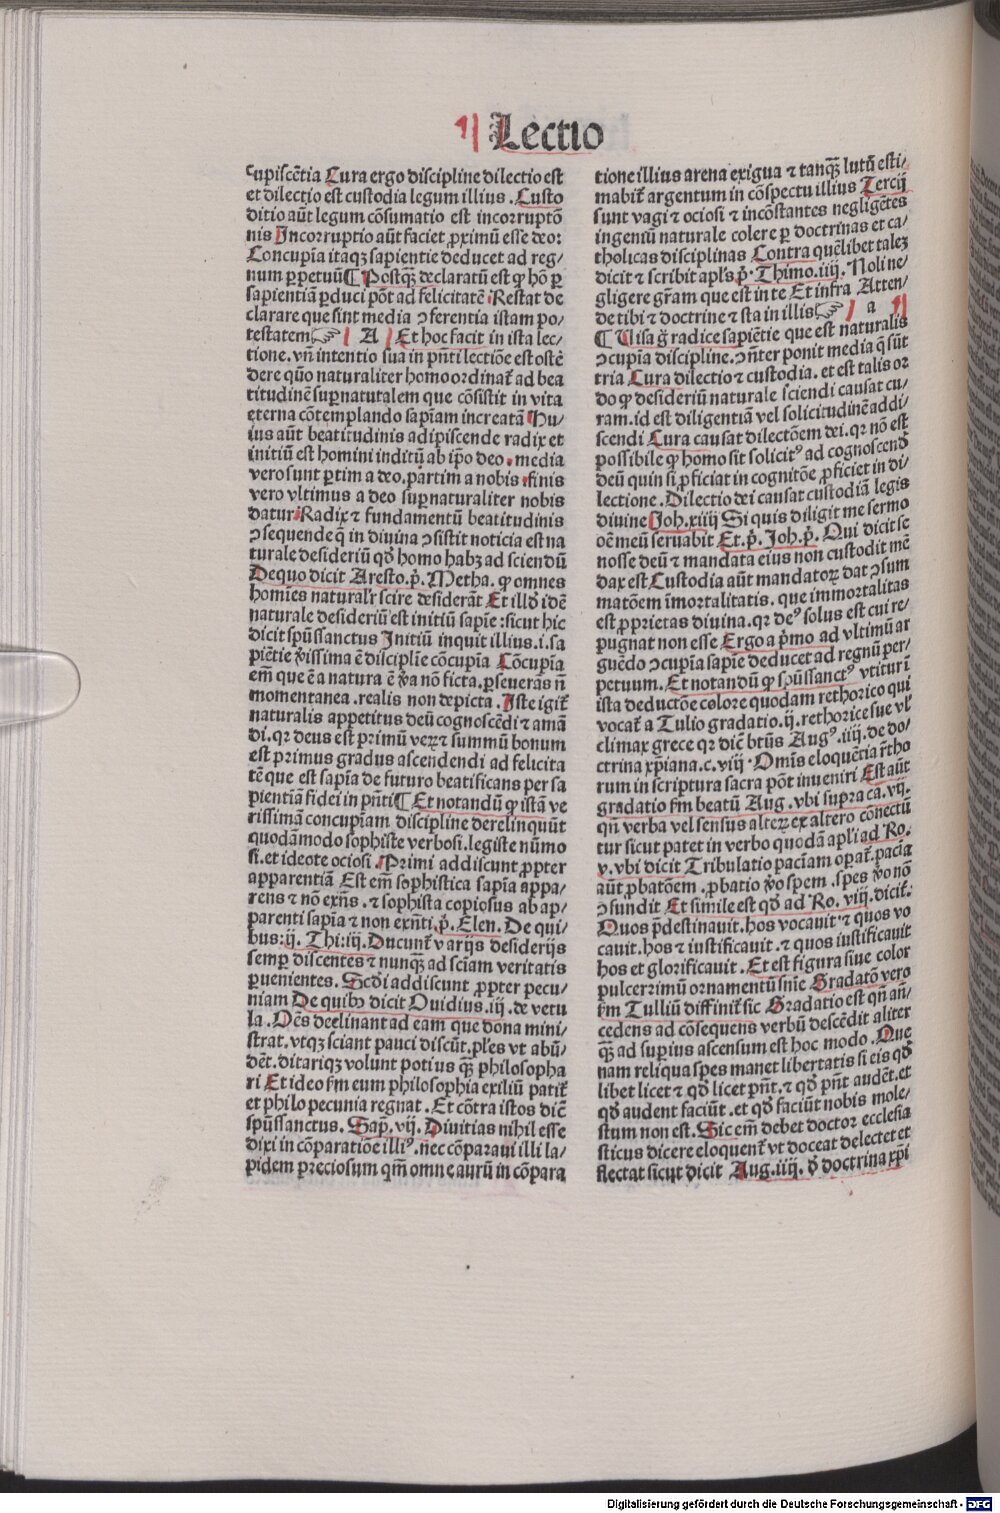 Lectio
cupiscẽtia Cura ergo discipline dilectio est
et dilectio est custodia legum illius . Custo
ditio aũt legum cõsumatio est incorruptõ
nis Incorruptio aũt faciet ꝓximũ esse deo:
Concupĩa itaqꝫ sapientie deducet ad reg⸗
num ꝑpetuũ ¶ Postqꝫ̃ declaratũ est ꝙ hõ ꝑ
sapientiã ꝑduci põt ad felicitatẽ Restat de
clarare que sint media ꝯferentia istam po⸗
testatem ☞ A Et hoc facit in ista lec⸗
tione. vñ intentio sua in pñti lectiõe est ostẽ
dere quõ naturaliter homo ordinat᷑ ad bea
titudinẽ suꝑnatutalem que cõsistit in vita
eterna cõtemplando sapiam increatã Hu⸗
ius aũt beatitudinis adipiscende radix et
initiũ est homini inditũ ab ip̃o deo. media
vero sunt ꝑtim a deo. partim a nobis . finis
vero vltimus a deo suꝑnaturaliter nobis
datur Radix ⁊ fundamentũ beatitudinis
ꝯsequende q̃ in diuina ꝯsistit noticia est na
turale desideriũ qd̕ homo habꝫ ad sciendũ
De quo dicit Aresto. p̃. Metha. ꝙ omnes
homĩes naturalr̃ scire desiderãt Et illd̕ idẽ
naturale desideriũ est initiũ sapiẽ : sicut hic
dicit spũssanctus Initiũ inquit illius .i. sa
piẽtie ṽissima ẽ disciplĩe cõcupĩa Cõcupĩa
em̃ que ẽ a natura ẽ ṽa nõ ficta. ꝑseuerãs ñ
momentanea . realis non depicta . Iste igit᷑
naturalis appetitus deũ cognoscẽdi ⁊ amã
di. qꝛ deus est primũ veꝝ ⁊ summũ bonum
est primus gradus ascendendi ad felicita
tẽ que est sapĩa de futuro beatificans per sa
pientiã fidei in pñti ¶ Et notandũ ꝙ istã ve
rissimã concupiam discipline derelinquũt
quodãmodo sophiste verbosi. legiste nũmo
si. et ideote ociosi . Primi addiscunt ꝓpter
apparentiã Est em̃ sophistica sapĩa appa⸗
rens ⁊ nõ exñs. ⁊ sophista copiosus ab ap⸗
parenti sapĩa ⁊ non exñti. p̃. Elen. De qui⸗
bus: ij. Thi: iij. Ducunt᷑ varijs desiderijs
semꝑ discentes ⁊ nunqꝫ̃ ad sciam veritatis
ꝑuenientes. Scd̕i addiscunt ꝓpter pecu⸗
niam De quibꝫ dicit Ouidius. iij . de vetu
la . Oẽs declinant ad eam que dona mini⸗
strat. vtqꝫ sciant pauci discũt. pl̕es vt abũ⸗
dẽt. ditariqꝫ volunt potius qꝫ̃ philosopha
ri Et ideo fm̃ eum philosophia exiliũ patit᷑
et philo pecunia regnat . Et cõtra istos diẽ
spũssanctus. Sap̃. vij. Diuitias nihil esse
dixi in cõparatiõe illiꝰ . nec cõparaui illi la⸗
pidem preciosum qm̃ omne aurũ in cõpara
tione illius arena exigua ⁊ tanqꝫ̃ lutũ esti⸗
mabit᷑ argentum in cõspectu illius Tercij
sunt vagi ⁊ ociosi ⁊ incõstantes negligẽtes
ingeniũ naturale colere ꝑ doctrinas et ca⸗
tholicas disciplinas Contra quẽlibet taleꝫ
dicit ⁊ scribit apl̕s p̃. Thimo. iiij. Noli ne⸗
gligere gr̃am que est in te Et infra Atten⸗
de tibi ⁊ doctrine ⁊ sta in illis ☞ a
¶ Uisa g̃ radice sapiẽtie que est naturalis
ꝯcupĩa discipline. ꝯñter ponit media q̃ sũt
tria Cura dilectio ⁊ custodia . et est talis or
do ꝙ desideriũ naturale sciendi causat cu⸗
ram. id est diligentiã vel solicitudinẽ addi⸗
scendi Cura causat dilectõem dei. qꝛ nõ est
possibile ꝙ homo sit solicitꝰ ad cognoscend̕
deũ quin si ꝓficiat in cognitõe ꝓficiet in di⸗
lectione . Dilectio dei causat custodiã legis
diuine Joh. xiiij Si quis diligit me sermo
oẽ meũ seruabit Et. p̃. Joh. p̃. Qui dicit se
nosse deũ ⁊ mandata eius non custodit mẽ
dax est Custodia aũt mandatoꝝ dat ꝯsum
matõem ĩmortalitatis . que immortalitas
est proprietas diuina. qꝛ deꝰ solus est cui re⸗
pugnat non esse Ergo a p̃mo ad vltimũ ar
guẽdo ꝯcupĩa sapiẽ deducet ad regnũ per⸗
petuum. Et notandũ ꝙ spũssanctꝰ vtitur ĩ
ista deductõe colore quodam rethorico qui
vocat᷑ a Tulio gradatio. ij. rethorice sue vl̕
climax grece qꝛ diẽ btũs Augꝰ. iiij. de do⸗
ctrina xp̃iana. c. viij . Omĩs eloquẽtia r̃tho
rum in scriptura sacra põt inueniri Est aũt
gradatio fm̃ beatũ Aug . vbi supra ca. vij.
qñ verba vel sensus alteꝝ ex altero cõnectũ
tur sicut patet in verbo quodã apl̕i ad Ro.
v. vbi dicit Tribulatio paciam oꝑat᷑. pacĩa
aũt ꝓbatõem . ꝓbatio ṽo spem . spes ṽo nõ
ꝯfundit Et simile est qd̕ ad Ro. viij. dicit᷑:
Quos p̃destinauit. hos vocauit ⁊ quos vo
cauit. hos ⁊ iustificauit . ⁊ quos iustificauit
hos et glorificauit . Et est figura siue color
pulcerrimũ ornamentũ sñie Gradatõ vero
fm̃ Tulliũ diffinit᷑ sic Gradatio est qñ añ⸗
cedens ad cõsequens verbũ descẽdit aliter
qꝫ̃ ad superius ascensum est hoc modo . Que
nam reliqua spes manet libertatis si eis qd̕
libet licet ⁊ qd̕ licet pñt. ⁊ qd̕ pñt audẽt. et
qd̕ audent faciũt . et qd̕ faciũt nobis mole⸗
stum non est. Sic em̃ debet doctor ecclesia
sticus dicere eloquent᷑ vt doceat delectet et
flectat sicut dicit Aug. iiij. d̕ doctrina xp̃i
Digitalisierung gefördert durch die Deutsche Forschungsgemeinschaft - DFG